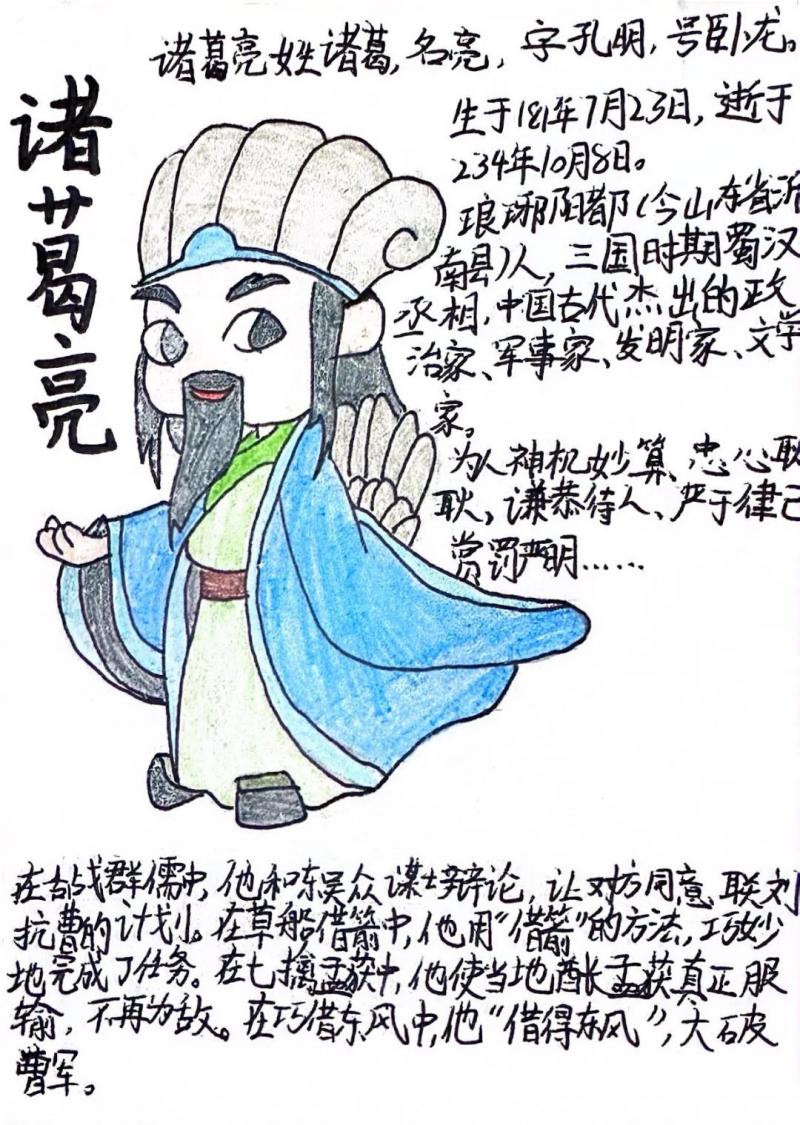 诸葛亮
诸葛亮姓诸葛,名亮,字孔明,号卧龙。
生于181年7月23日,逝于
234年10月8日。
琅琊阳都(今山东省沂
南县)人,三国时期蜀汉
丞相,中国古代杰出的政
治家、军事家、发明家、文学
家。
为人神机妙算、忠心耿
耿、谦恭待人、严于律己
赏罚严明……
在舌战群儒中,他和东吴众谋士辩论,让对方同意联刘
抗曹的计划。在草船借箭中,他用“借箭”的方法,巧妙
地完成了任务。在七擒孟获中,他使当地酋长孟获真正服
输,不再为敌。在巧借东风中,他“借得东风”,大破
曹军。